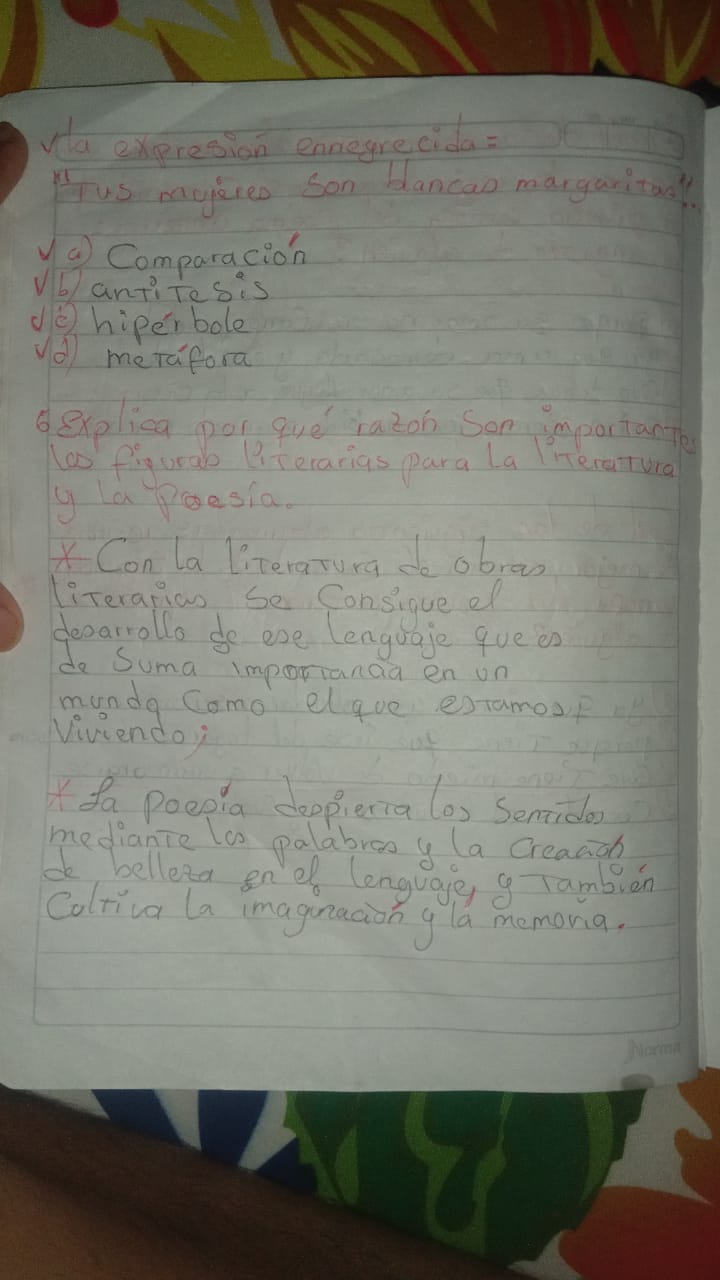 √ la expresión ennegrecida =
"Tus mujeres son blancas margaritas"..
√ a) Comparación
√ b) antitesis
√ c) hipérbole
√ d) metáfora
6 Explica por qué razón son importantes
las figuras literarias para la literatura
y la poesía.
* Con la literatura de obras
literarias se consigue el
desarrollo de ese lenguaje que es
de suma importancia en un
mundo como el que estamos
viviendo;
* La poesía despierta los sentidos
mediante las palabras y la creación
de belleza en el lenguaje, y también
cultiva la imaginación y la memoria.
Norma